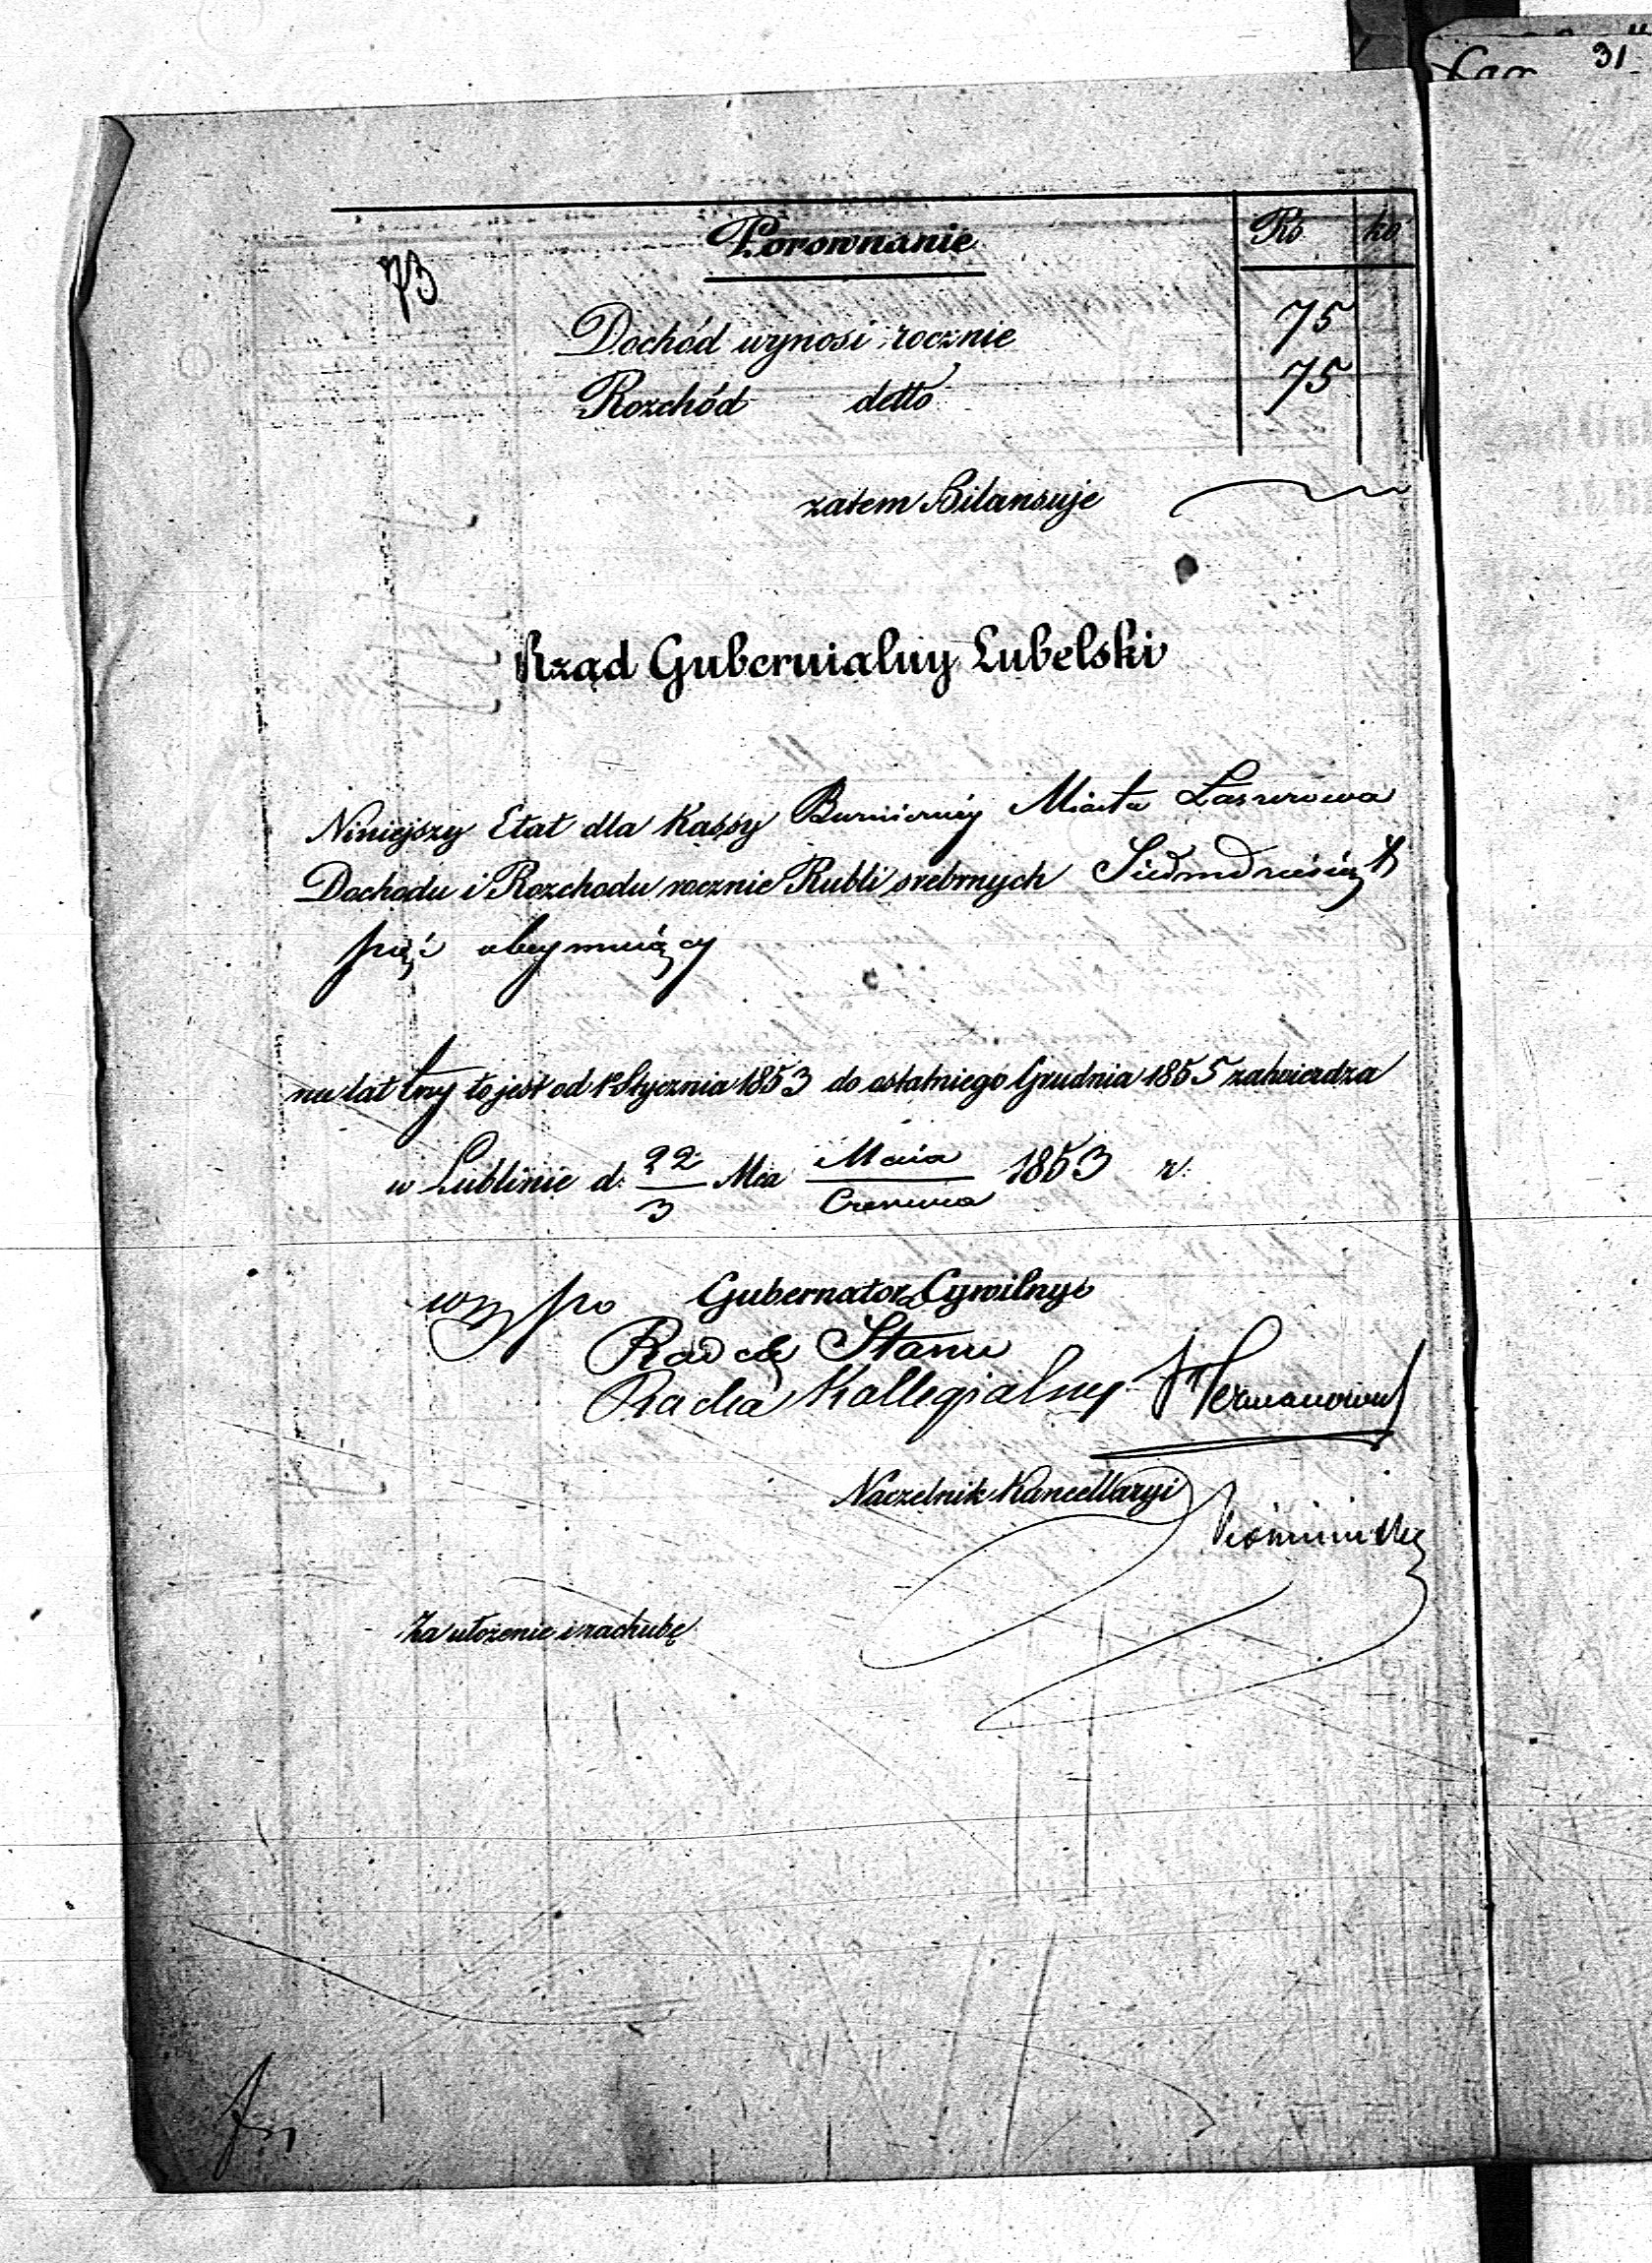 31
Porownanie
Rs ko
73
Dochód wynosi rocznie 75
Rozchód detto 75
zatem Bilansuje
Rząd Gubernialny Lubelski
Niniejszy Etat dla Kassy Miasta
Dochodu i Rozchodu rocznie Rubli srebrnych Siedmdziesiąt
pięć obeymuiący
na lat trzy to jest od 1 Stycznia 1853 do ostatniego Grudnia 1855 zatwierdza
w Lublinie d. 22/3 Mca Maia/Czerwca 1853 r.
wz po Gubernator Cywilny
Radcę Stanu
Radca Kollegialny
Naczelnik Kancellaryi
Za ułożenie i rachubę